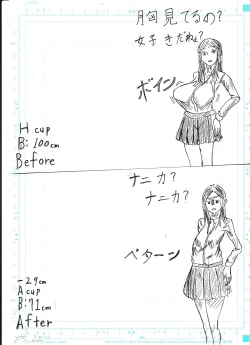 胸見てるの?
好きだねぇ?
ボイン
H cup
B: 100cm
Before
ナニカ?
ナニカ?
ペターン
-29cm
A cup
B: 71cm
After